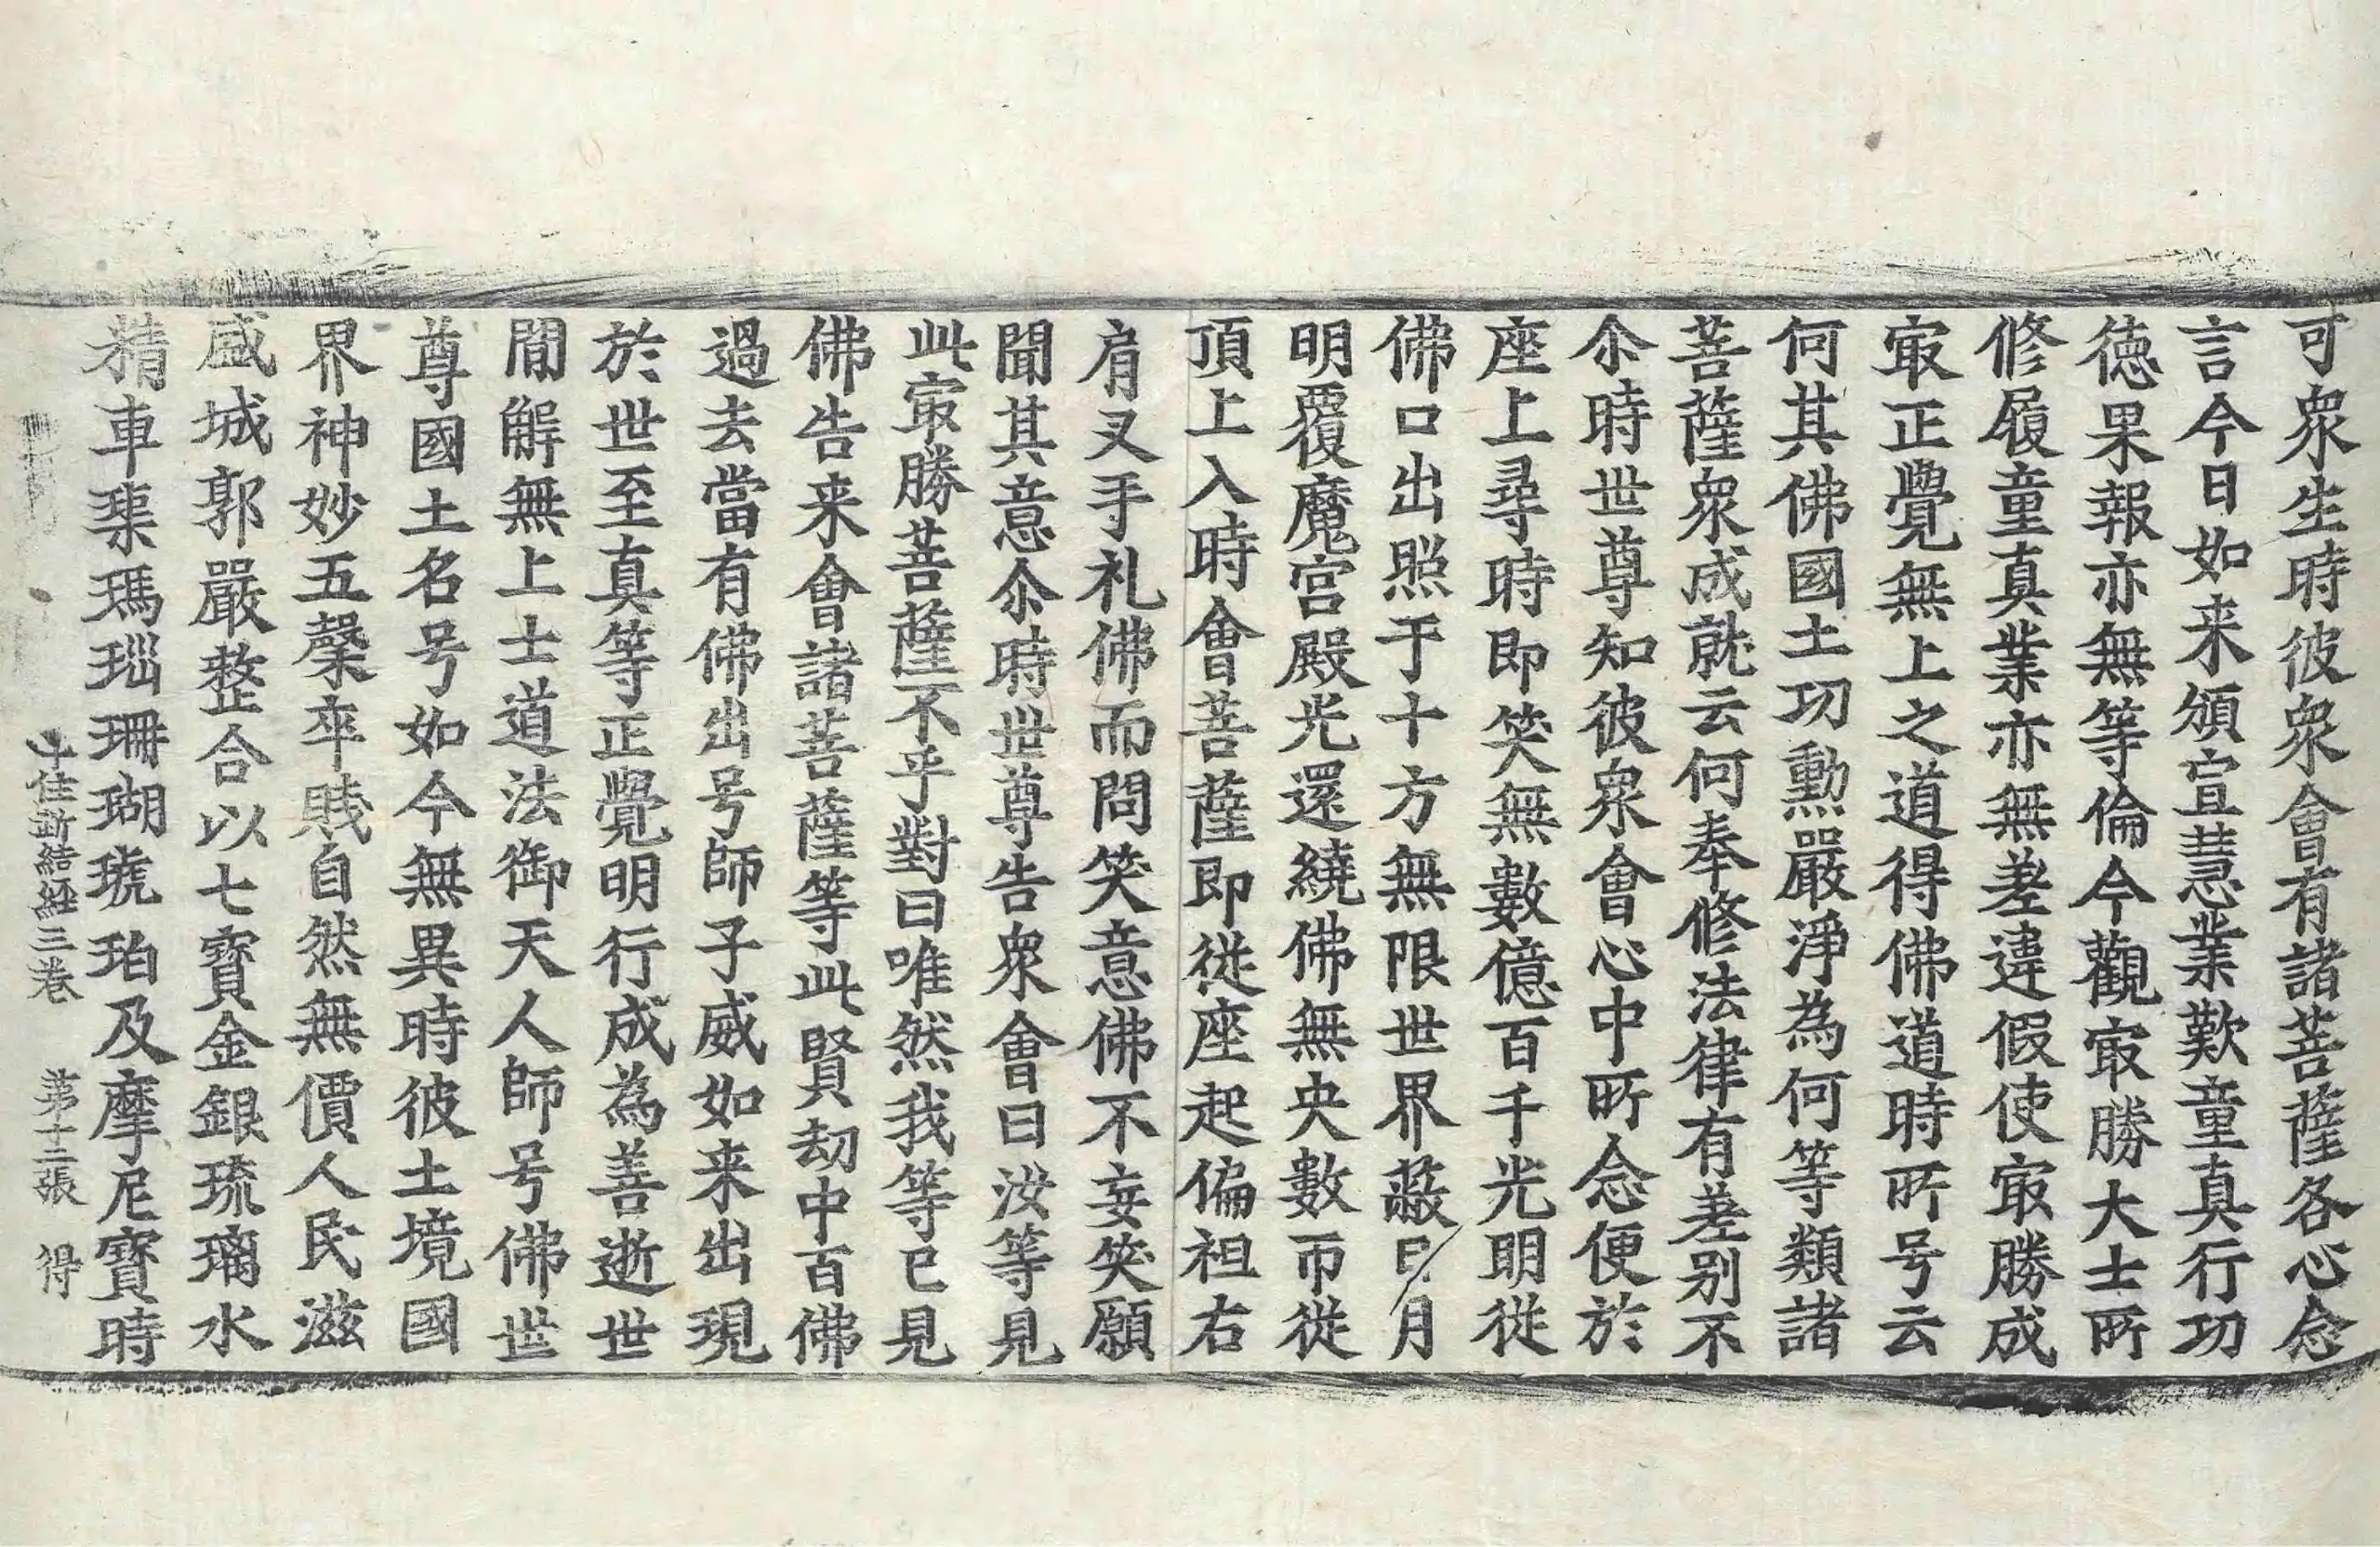 可衆生時彼衆會有諸菩薩各心念
言今日如来頒宣慧業歎童真行功
徳果報亦無等倫今觀冣勝大士所
修履童真業亦無差違假使冣勝成
冣正覺無上之道得佛道時所号云
何其佛國土功勲嚴淨為何等類諸
菩薩衆成就云何奉修法律有差別不
尒時世尊知彼衆會心中所念便於
座上尋時即笑無數億百千光明従
佛口出照于十方無限世界蔽日月
明覆魔宮殿光還繞佛無央數帀従
頂上入時會菩薩即従座起偏袒右
肩叉手礼佛而問笑意佛不妄笑願
聞其意尒時世尊告衆會曰汝等見
此冣勝菩薩不乎對曰唯然我等已見
佛告来會諸菩薩等此賢劫中百佛
過去當有佛出号師子威如来出現
於世至真等正覺明行成為善逝世
間解無上士道法御天人師号佛世
尊國土名号如今無異時彼土境國
界神妙五穀卒賤自然無價人民滋
盛城郭嚴整合以七寶金銀琉璃水
精車璖瑪瑙珊瑚琥珀及摩尼寶時
十住断結経三巻 第十二張 得